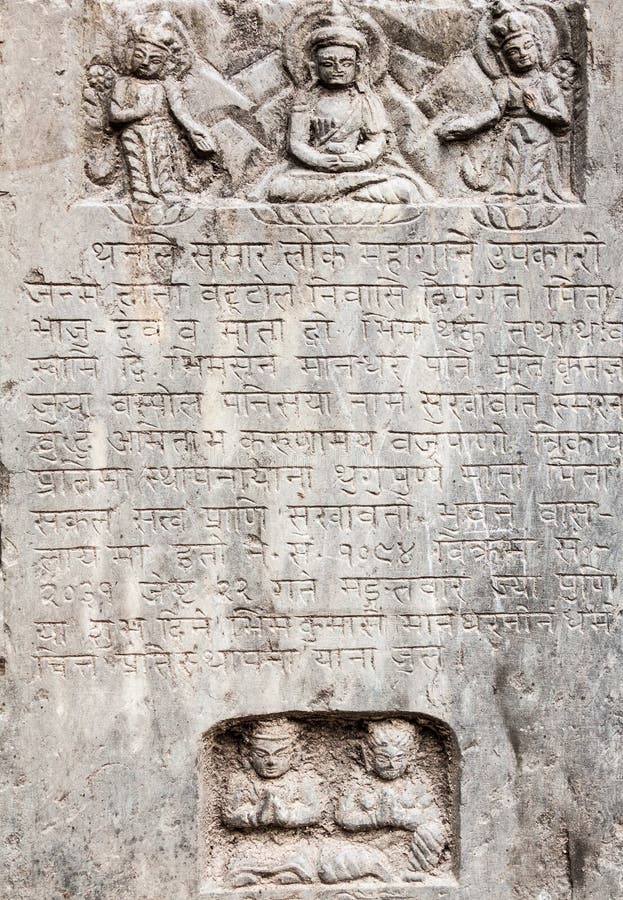 थनल संसार लोके महागाने उपकारी
जन्म दाता वटटोल निवासि दिपगत पिता-
भाजु-देव व माता दी भिम थकुं तथा थः व
स्वामि दि भिमसेन मानन्धर पनि प्रति कृतज्ञ
जुया सुखावति स्मरन
अमिताभ करुणामय वज्रपाणी त्रिकाय
प्रतिमा स्थापनायाना थुगुपुण्य माता पिता
सकल सत्व प्राणि सुखावती भुवने वास-
लायमा इती ने. सं. १०९४ विक्रम सं.-
२०३१ जेष्ट २२ गते मङ्गलवार ज्या पुणि
या शुभ दिने भिम कुमारी मानन्धरनीनं धर्म
चित्त प्रतिस्थापना याना जुल